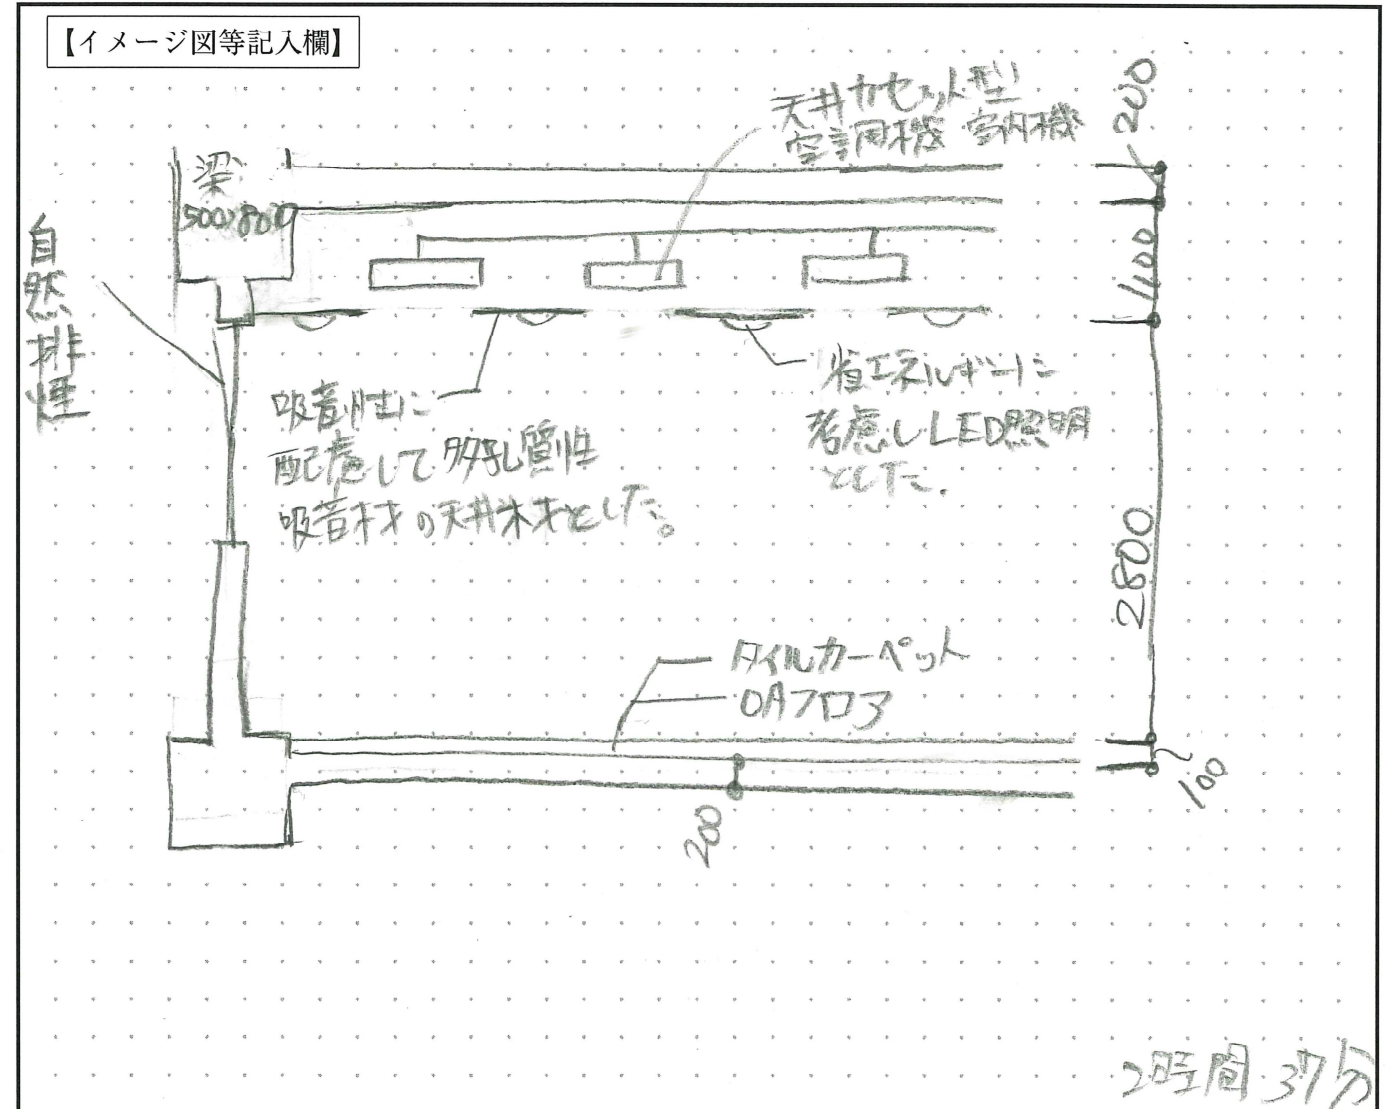 【イメージ図等記入欄】
天井カセット型
空調機 室内機
200
梁
500×800
自然排煙
1100
吸音性に
配慮して多孔質性
吸音材の天井材とした。
省エネルギーに
考慮しLED照明
とした.
2800
タイルカーペット
OAフロア
100
200
2時間37分